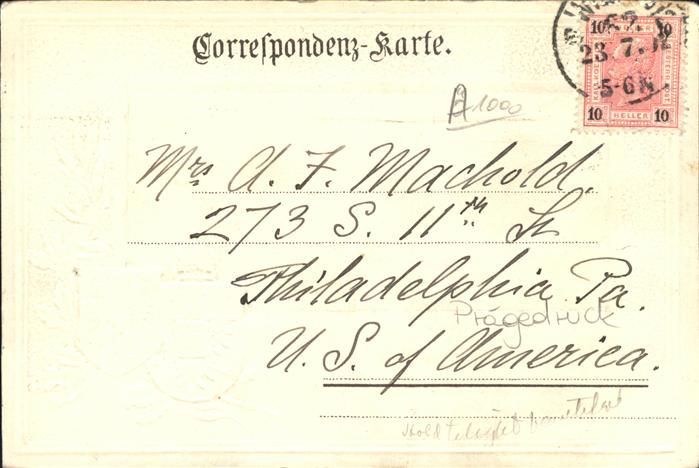 Correspondenz-Karte.
23.7.
5-6N
10 10
10 HELLER 10
A 1000
Mrs A. F. Machold.
273 S. 11th St
Philadelphia Pa.
Prägedruck
U. S. of America.